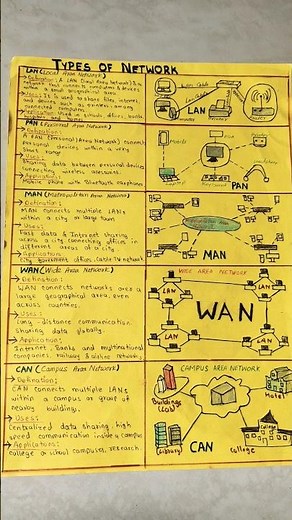 TYPES OF NETWORK
LAN (Local Area Network)
Definition: A LAN (Local Area Network) is a
network that connects computers & devices
within a small geographical area.
Uses: It is used to share files, internet,
and devices such as printers among
connected computers.
Application: Used in schools, offices, banks,
LAN
PAN (Personal Area Network)
Definition:
A PAN (Personal Area Network) connects
personal devices within a very
short
Uses:
Sharing data between personal devices
connecting wireless accessories.
Applications:
Mobile phone with Bluetooth earphones
Mobile
PAN
MAN (Metropolitan Area Network)
Definition:
MAN connects multiple LANs
within a city or large town.
Uses:
Fast data & Internet sharing
across a city, connecting offices in
different areas of a city.
Application:
City government offices, Cable TV network
MAN
WAN (Wide Area Network)
Definition:
WAN connects networks over a
large geographical area, even
across countries.
Uses:
Long-distance communication,
sharing data globally.
Application:
Internet, Banks and multinational
companies, railway & airline networks,
WIDE AREA NETWORK
LAN
LAN
WAN
LAN
LAN
CAN (Campus Area Network)
Definition:
CAN connects multiple LANs
within a campus or group of
nearby buildings.
Uses:
Centralized data sharing, high
speed communication inside campus
Applications:
college or school campuses, research
CAMPUS AREA NETWORK
Buildings
(Lab)
Hotel
(Library)
CAN
college